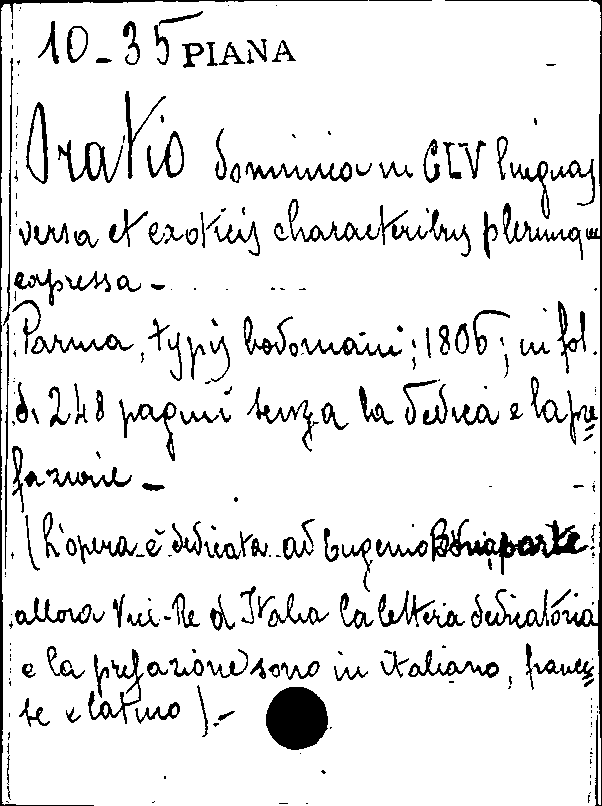 10-35 PIANA
Oratio dominica in CLV linguas
versa et exoticis characteribus plerumque
expressa -
Parma, typis bodoniani; 1806; in fol.
di 248 pagini senza la dedica e la pre=
fazione -
(L'opera è dedicata ad Eugenio Bonaparte
allora Vici-Re d'Italia la lettera dedicatoria
e la prefazione sono in italiano, france=
se e latino).-